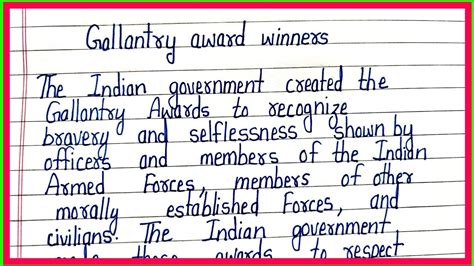 Gallantry award winners
The Indian government created the
Gallantry Awards to recognize
bravery and selflessness shown by
officers and members of the Indian
Armed Forces, members of other
morally established Forces, and
civilians. The Indian government
made these awards to respect